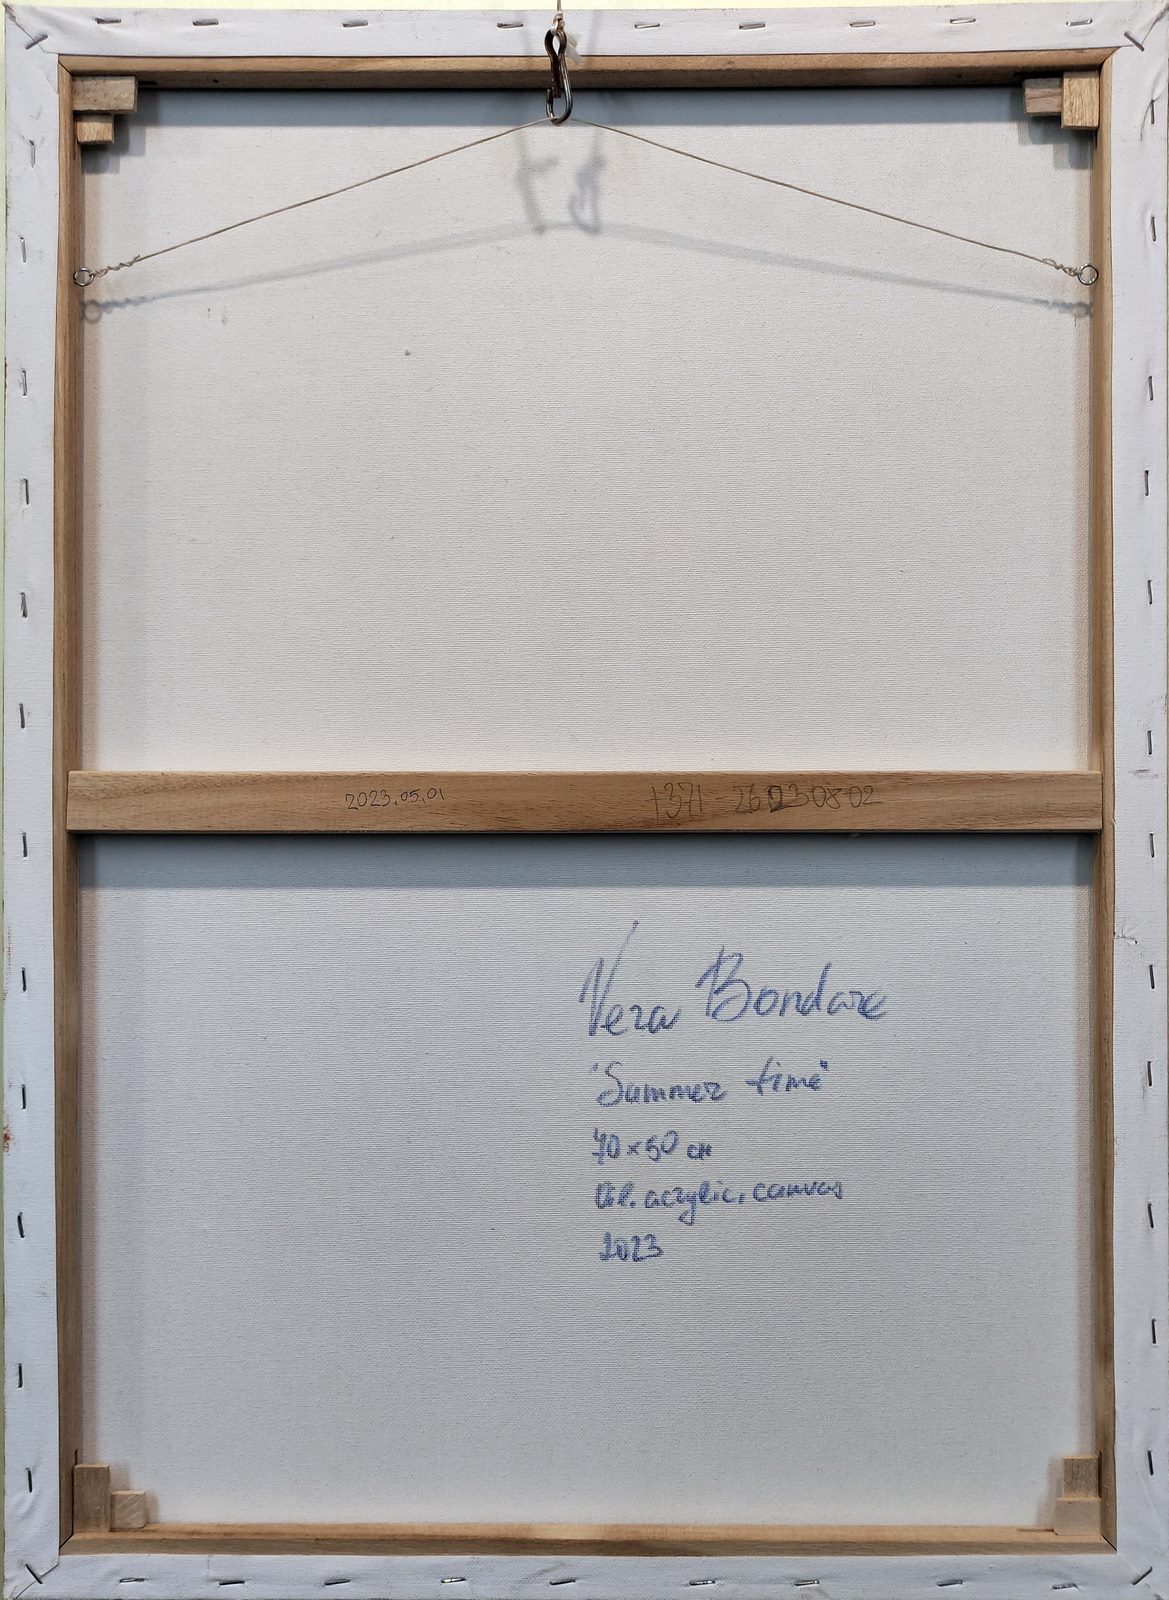 2023.05.01
+371-26230802
Vera Bondare
"Summer time"
70x50 cm
Oil. acrylic. canvas
2023